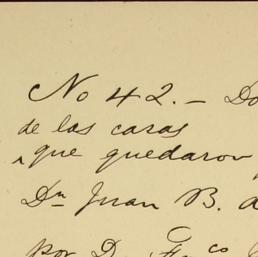 No 42. – Do
de las casas
^ que quedaron
Dn Juan B. a
por D. Fco